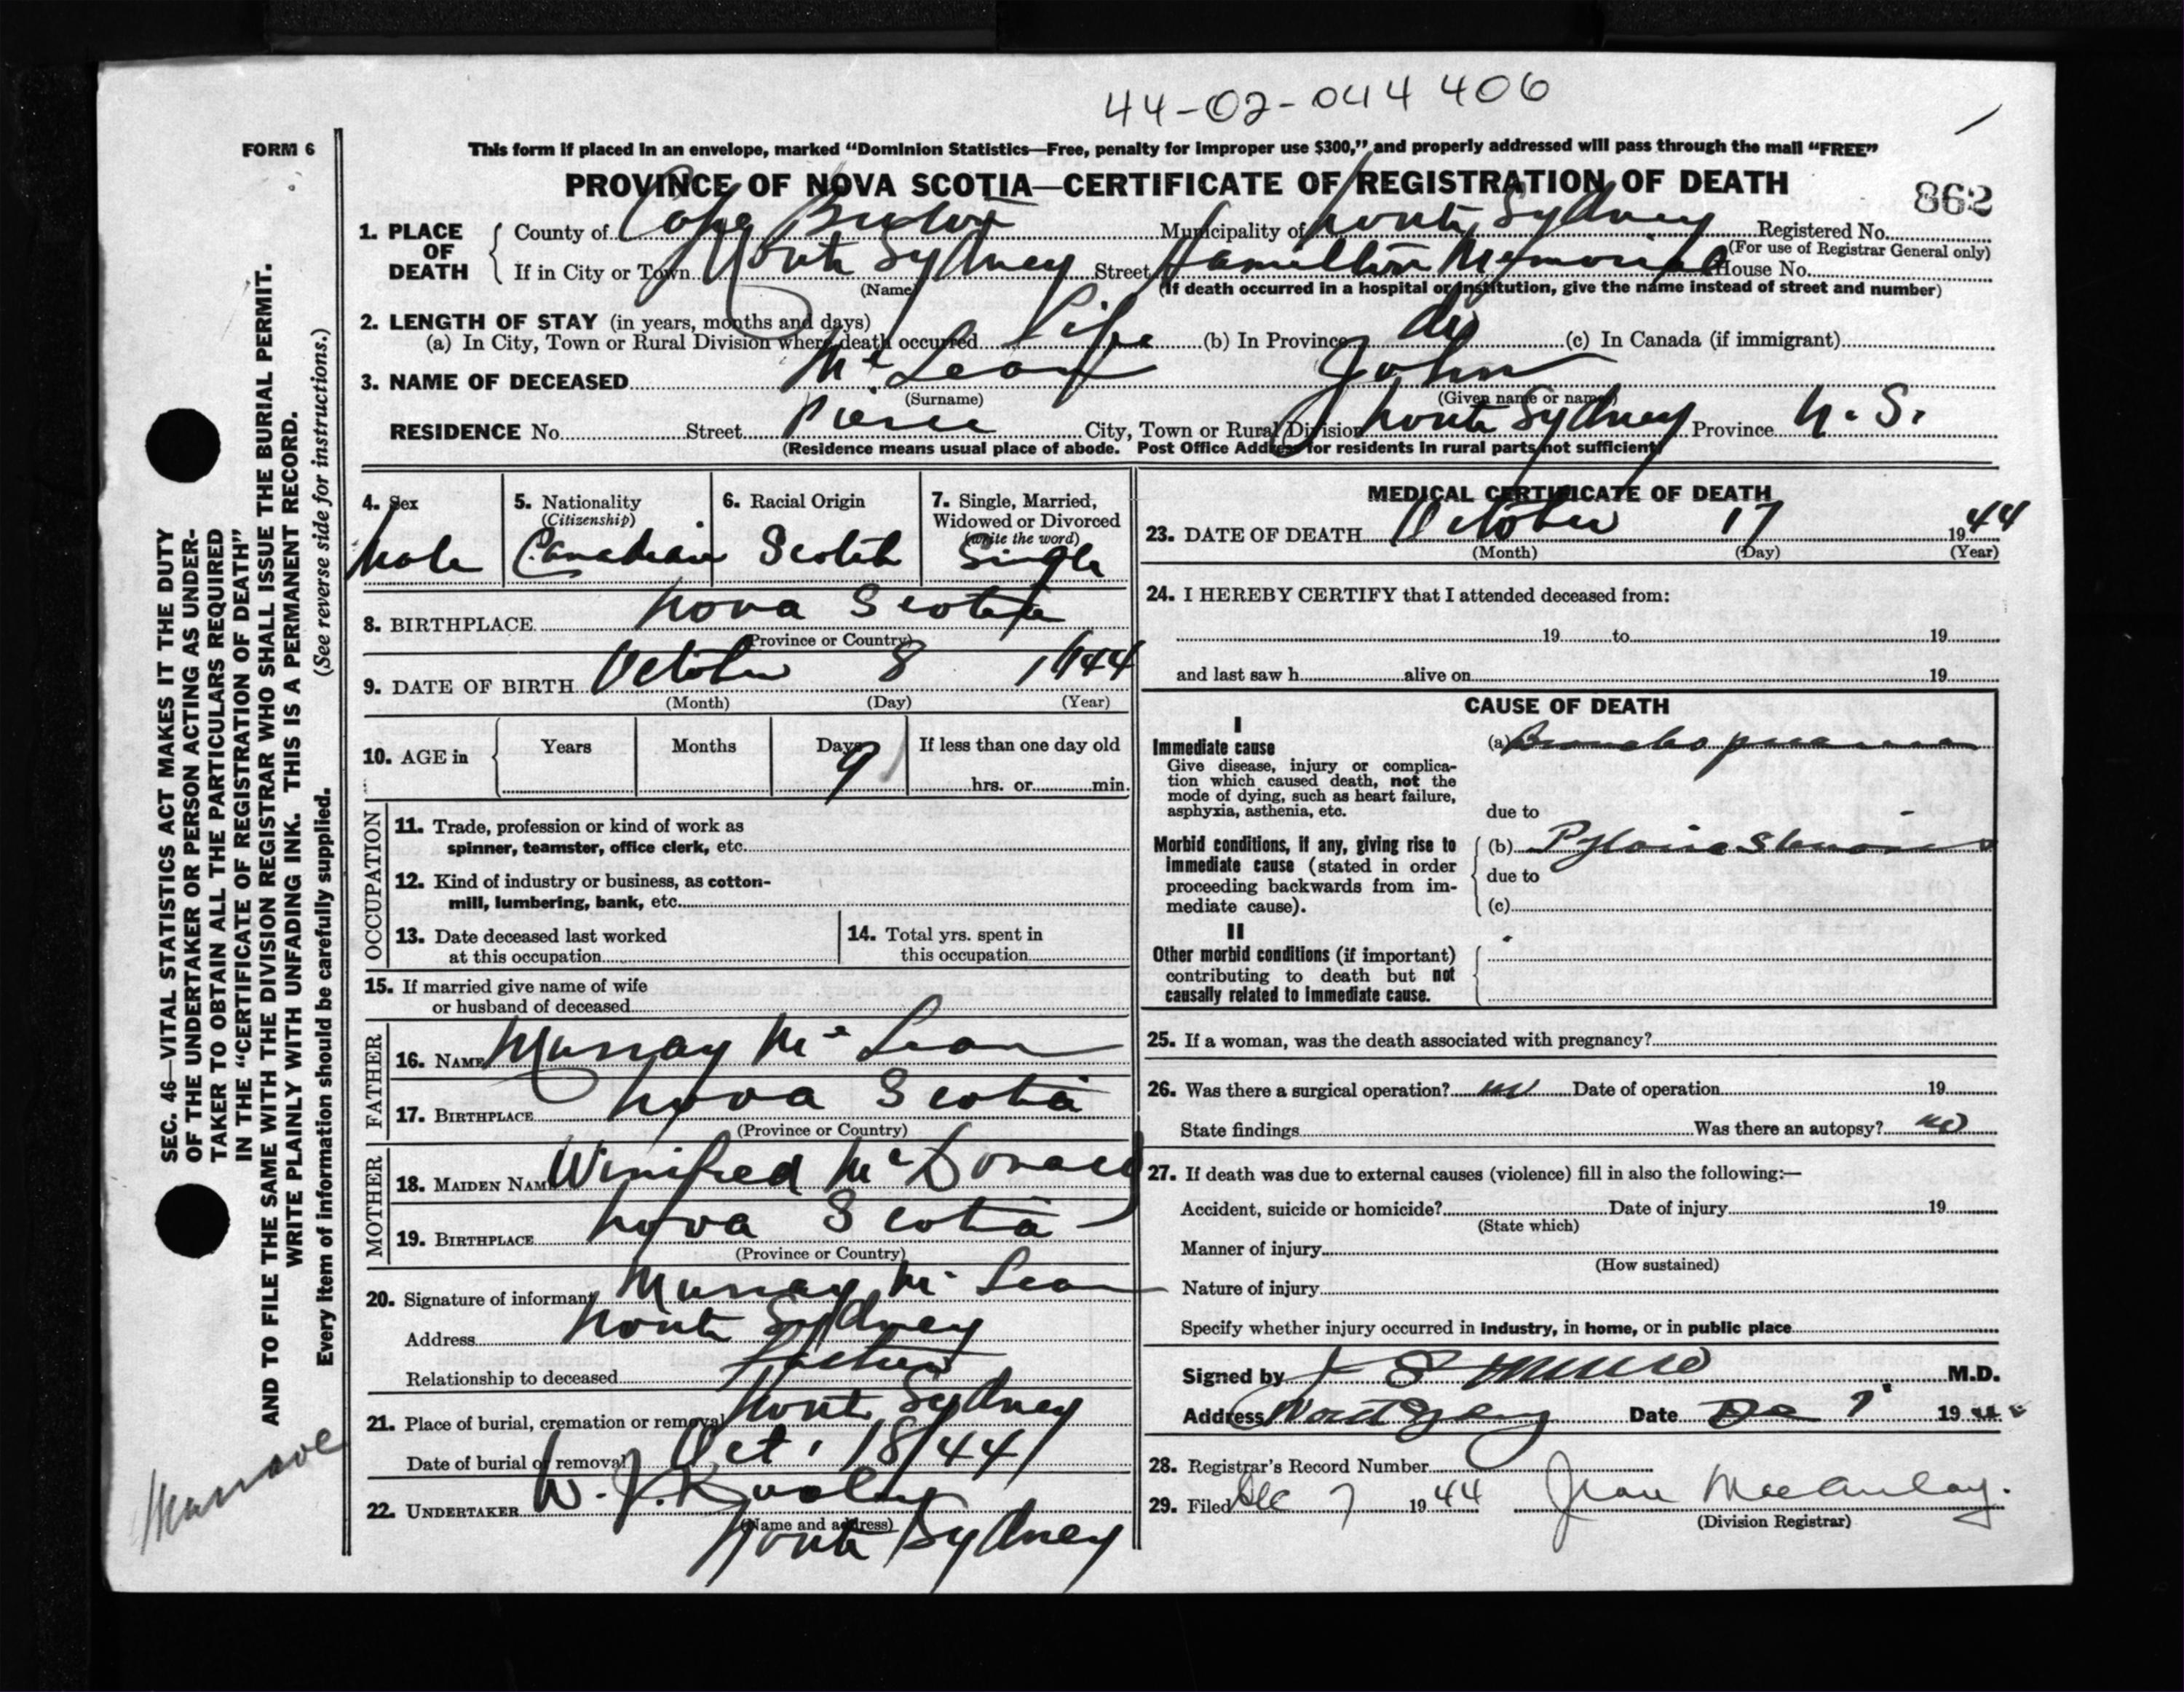 44-02-044 406
FORM 6
This form if placed in an envelope, marked "Dominion Statistics—Free, penalty for improper use $300," and properly addressed will pass through the mail "FREE"
PROVINCE OF NOVA SCOTIA—CERTIFICATE OF REGISTRATION OF DEATH
862
1. PLACE OF DEATH
County of Cape Breton Municipality of North Sydney Registered No.
(For use of Registrar General only)
If in City or Town North Sydney Street Hamilton Memorial House No.
(Name) (If death occurred in a hospital or institution, give the name instead of street and number)
2. LENGTH OF STAY (in years, months and days)
(a) In City, Town or Rural Division where death occurred Life (b) In Province do (c) In Canada (if immigrant)
3. NAME OF DECEASED Mc Lean John
(Surname) (Given name or names)
RESIDENCE No. Street Pierce City, Town or Rural Division North Sydney Province N. S.
(Residence means usual place of abode. Post Office Address for residents in rural parts not sufficient)
4. Sex
Male
5. Nationality
(Citizenship)
Canadian
6. Racial Origin
Scotch
7. Single, Married,
Widowed or Divorced
(write the word)
Single
8. BIRTHPLACE Nova Scotia
(Province or Country)
9. DATE OF BIRTH October 8 1944
(Month) (Day) (Year)
10. AGE in Years Months Days 9 If less than one day old
hrs. or min.
OCCUPATION
11. Trade, profession or kind of work as
spinner, teamster, office clerk, etc.
12. Kind of industry or business, as cotton-
mill, lumbering, bank, etc.
13. Date deceased last worked
at this occupation
14. Total yrs. spent in
this occupation
15. If married give name of wife
or husband of deceased
FATHER
16. NAME Murray Mc Lean
17. BIRTHPLACE Nova Scotia
(Province or Country)
MOTHER
18. MAIDEN NAME Winifred McDonald
19. BIRTHPLACE Nova Scotia
(Province or Country)
20. Signature of informant Murray Mc Lean
Address North Sydney
Relationship to deceased Father
21. Place of burial, cremation or removal North Sydney
Date of burial or removal Oct. 18/44
22. UNDERTAKER W. J.
(Name and address)
North Sydney
MEDICAL CERTIFICATE OF DEATH
23. DATE OF DEATH October 17 1944
(Month) (Day) (Year)
24. I HEREBY CERTIFY that I attended deceased from:
19 to 19
and last saw h alive on 19
CAUSE OF DEATH
I
Immediate cause
Give disease, injury or complica-
tion which caused death, not the
mode of dying, such as heart failure,
asphyxia, asthenia, etc.
(a) Broncho pneumonia
due to
Morbid conditions, if any, giving rise to
immediate cause (stated in order
proceeding backwards from im-
mediate cause).
(b) Pyloric Stenosis
due to
(c)
II
Other morbid conditions (if important)
contributing to death but not
causally related to immediate cause.
25. If a woman, was the death associated with pregnancy?
26. Was there a surgical operation? no Date of operation 19
State findings Was there an autopsy? no
27. If death was due to external causes (violence) fill in also the following:—
Accident, suicide or homicide? Date of injury 19
(State which)
Manner of injury
(How sustained)
Nature of injury
Specify whether injury occurred in industry, in home, or in public place
Signed by S Munro M.D.
Address Date De 7 1944
28. Registrar's Record Number
29. Filed Dec 7 1944 Jean MacAulay.
(Division Registrar)
SEC. 46—VITAL STATISTICS ACT MAKES IT THE DUTY
OF THE UNDERTAKER OR PERSON ACTING AS UNDER-
TAKER TO OBTAIN ALL THE PARTICULARS REQUIRED
IN THE "CERTIFICATE OF REGISTRATION OF DEATH"
AND TO FILE THE SAME WITH THE DIVISION REGISTRAR WHO SHALL ISSUE THE BURIAL PERMIT.
WRITE PLAINLY WITH UNFADING INK. THIS IS A PERMANENT RECORD.
Every item of information should be carefully supplied. (See reverse side for instructions.)